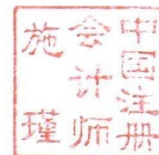 中国注册
会计师
施瑾